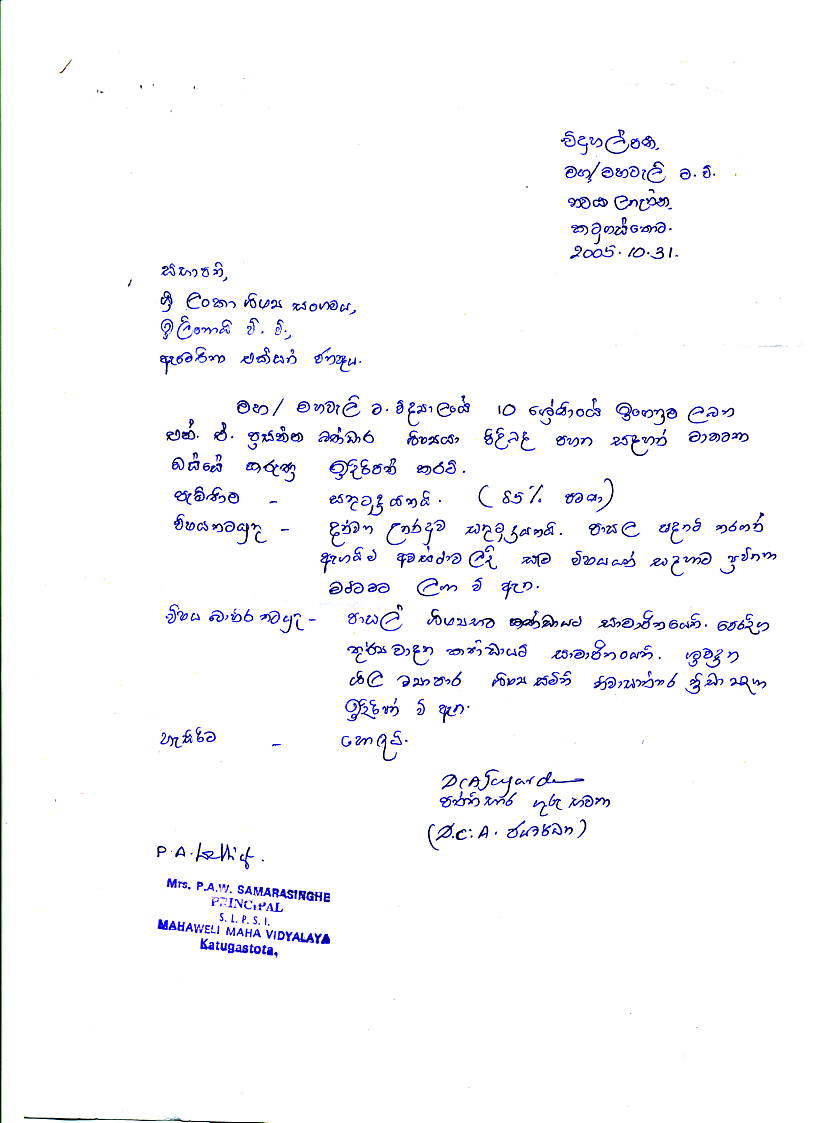 විදුහල්පති,
මහ/මහවැලි ම. වි.
නවයාලතැන්න,
කටුගස්තොට.
2005.10.31.
සභාපති,
ශ්‍රී ලංකා ශිෂ්‍ය සංගමය,
ඉලිනොයි වී. වී.,
ඇමෙරිකා එක්සත් ජනපදය.
මහ/ මහවැලි ම. විද්‍යාලයේ 10 ශ්‍රේණියේ ඉගෙනුම ලබන
එන්. ඒ. ප්‍රසන්න බණ්ඩාර ශිෂ්‍යයා පිළිබඳ පහත සඳහන් මාතෘකා
ඔස්සේ කරුණු ඉදිරිපත් කරමි.
පැමිණීම - සතුටුදායකයි. (85% පමණ)
විෂයකටයුතු - දක්වන උනන්දුව සතුටුදායකයි. පාසල පදනම් කරගත්
ඇගයීම් අවස්ථාවලදී සෑම විෂයයක් සඳහාම ප්‍රවීණතා
මට්ටමට ලඟා වී ඇත.
විෂය බාහිර කටයුතු - පාසල් ශිෂ්‍යභට කණ්ඩායම සාමාජිකයෙකි. පෙරදිග
තූර්ය වාදන කණ්ඩායමේ සාමාජිකයෙකි.
ශීල ව්‍යාපාර ශිෂ්‍ය සමිති නිවාසාන්තර ක්‍රීඩා සඳහා
ඉදිරිපත් වී ඇත.
හැසිරීම - හොඳයි.
පන්තිභාර ගුරු භවතා
(D.C.A. ජයවර්ධන)
Mrs. P.A.W. SAMARASINGHE
PRINCIPAL
S. L. P. S. I.
MAHAWELI MAHA VIDYALAYA
Katugastota,